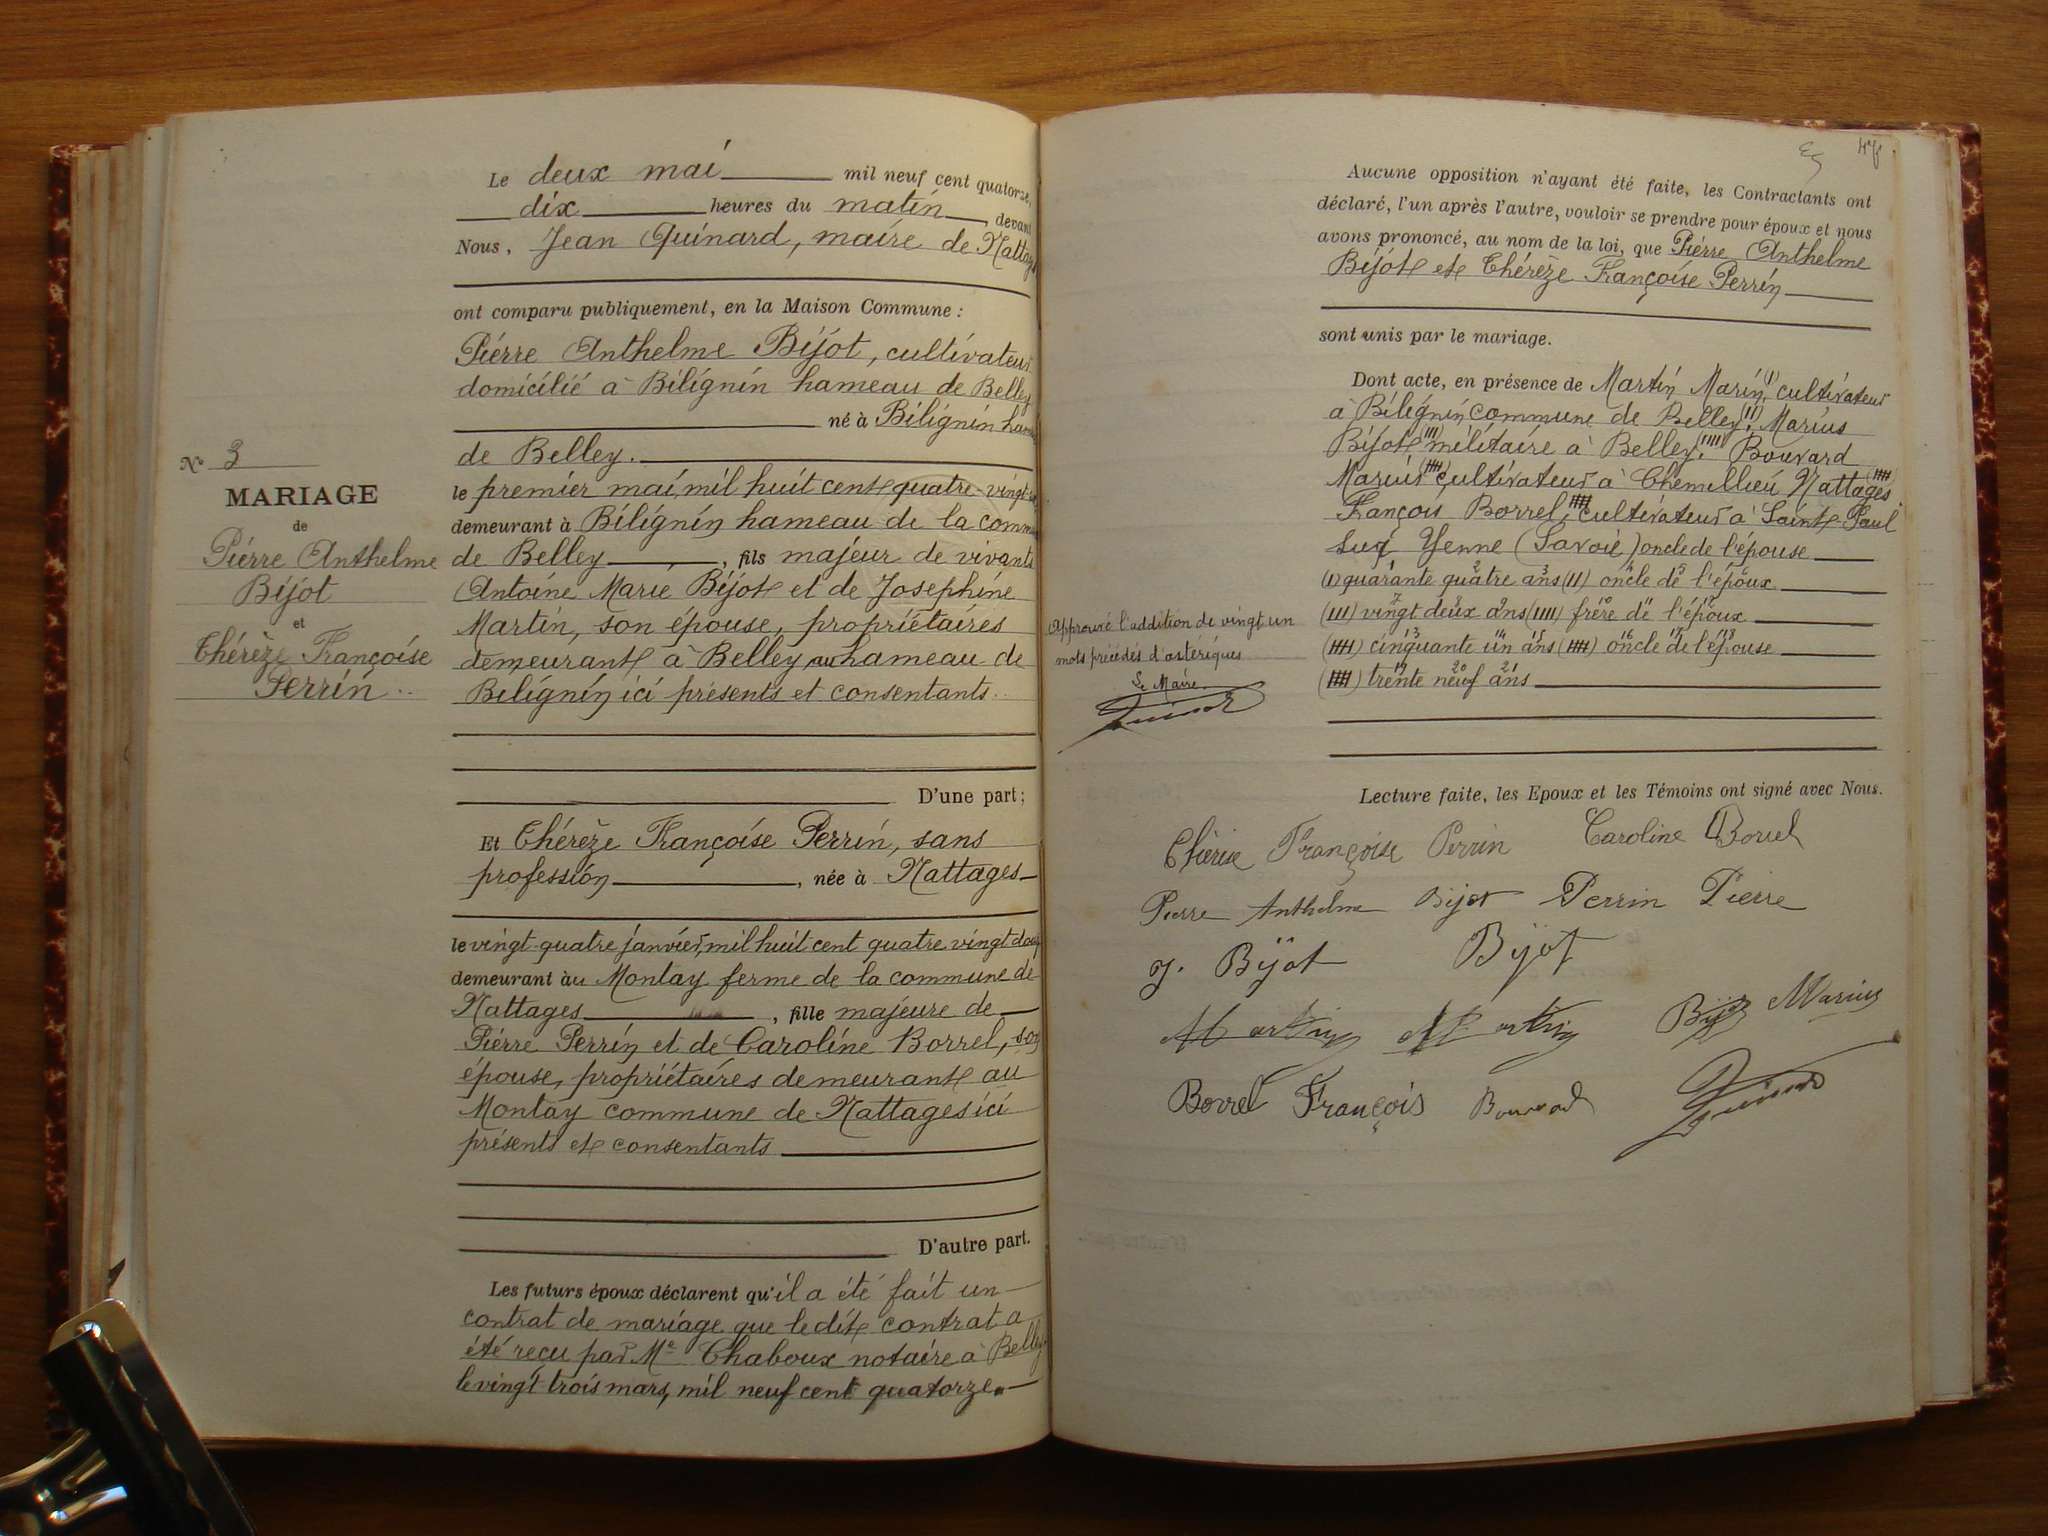 Le deux mai mil neuf cent quatorze,
dix heures du matin, devant
Nous, Jean Guinard, maire de Nattages
ont comparu publiquement, en la Maison Commune :
Pierre Anthelme Bijot, cultivateur
domicilié à Bilignin hameau de Belley
né à Bilignin
de Belley.
le premier mai, mil huit cent quatre-vingt
demeurant à Bilignin hameau de la commune
de Belley, fils majeur de vivants
Antoine Marie Bijot et de Josephine
Martin, son épouse, propriétaires
demeurant à Belley au hameau de
Bilignin ici présents et consentants.
D'une part;
Et Thérèze Françoise Perrin, sans
profession, née à Nattages
le vingt-quatre janvier, mil huit cent quatre vingt douze
demeurant au Montay ferme de la commune de
Nattages, fille majeure de
Pierre Perrin et de Caroline Borrel, son
épouse, propriétaires demeurant au
Montay commune de Nattages ici
présents et consentants
D'autre part.
Les futurs époux déclarent qu'il a été fait un
contrat de mariage que le dit contrat a
été reçu par Me Chaboux notaire à Belley
le vingt trois mars, mil neuf cent quatorze.
No 3
MARIAGE
de
Pierre Anthelme
Bijot
et
Thérèze Françoise
Perrin
47
Aucune opposition n'ayant été faite, les Contractants ont
déclaré, l'un après l'autre, vouloir se prendre pour époux et nous
avons prononcé, au nom de la loi, que Pierre Anthelme
Bijot et Thérèze Françoise Perrin
sont unis par le mariage.
Dont acte, en présence de Martin Marin, (I) cultivateur
à Bilignin, commune de Belley, (II) Marius
Bijot (III) militaire à Belley. (IIII) Bouvard
Marius (IIIII) cultivateur à Chemillieu Nattages
François Borrel, cultivateur à Saint-Paul
sur Yenne (Savoie) oncle de l'épouse
(I) quarante quatre ans (II) oncle de l'époux
(III) vingt deux ans (IIII) frère de l'époux
cinquante un ans oncle de l'épouse
trente neuf ans
Approuvé l'addition de vingt un
mots précédés d'astériques
Le Maire.
Guinard
Lecture faite, les Epoux et les Témoins ont signé avec Nous.
Thérèse Françoise Perrin Caroline Borrel
Pierre Anthelme Bijot Perrin Pierre
J. Bijot Bijot
Martin Martin Bijot Marius
Borrel François Bouvard Guinard